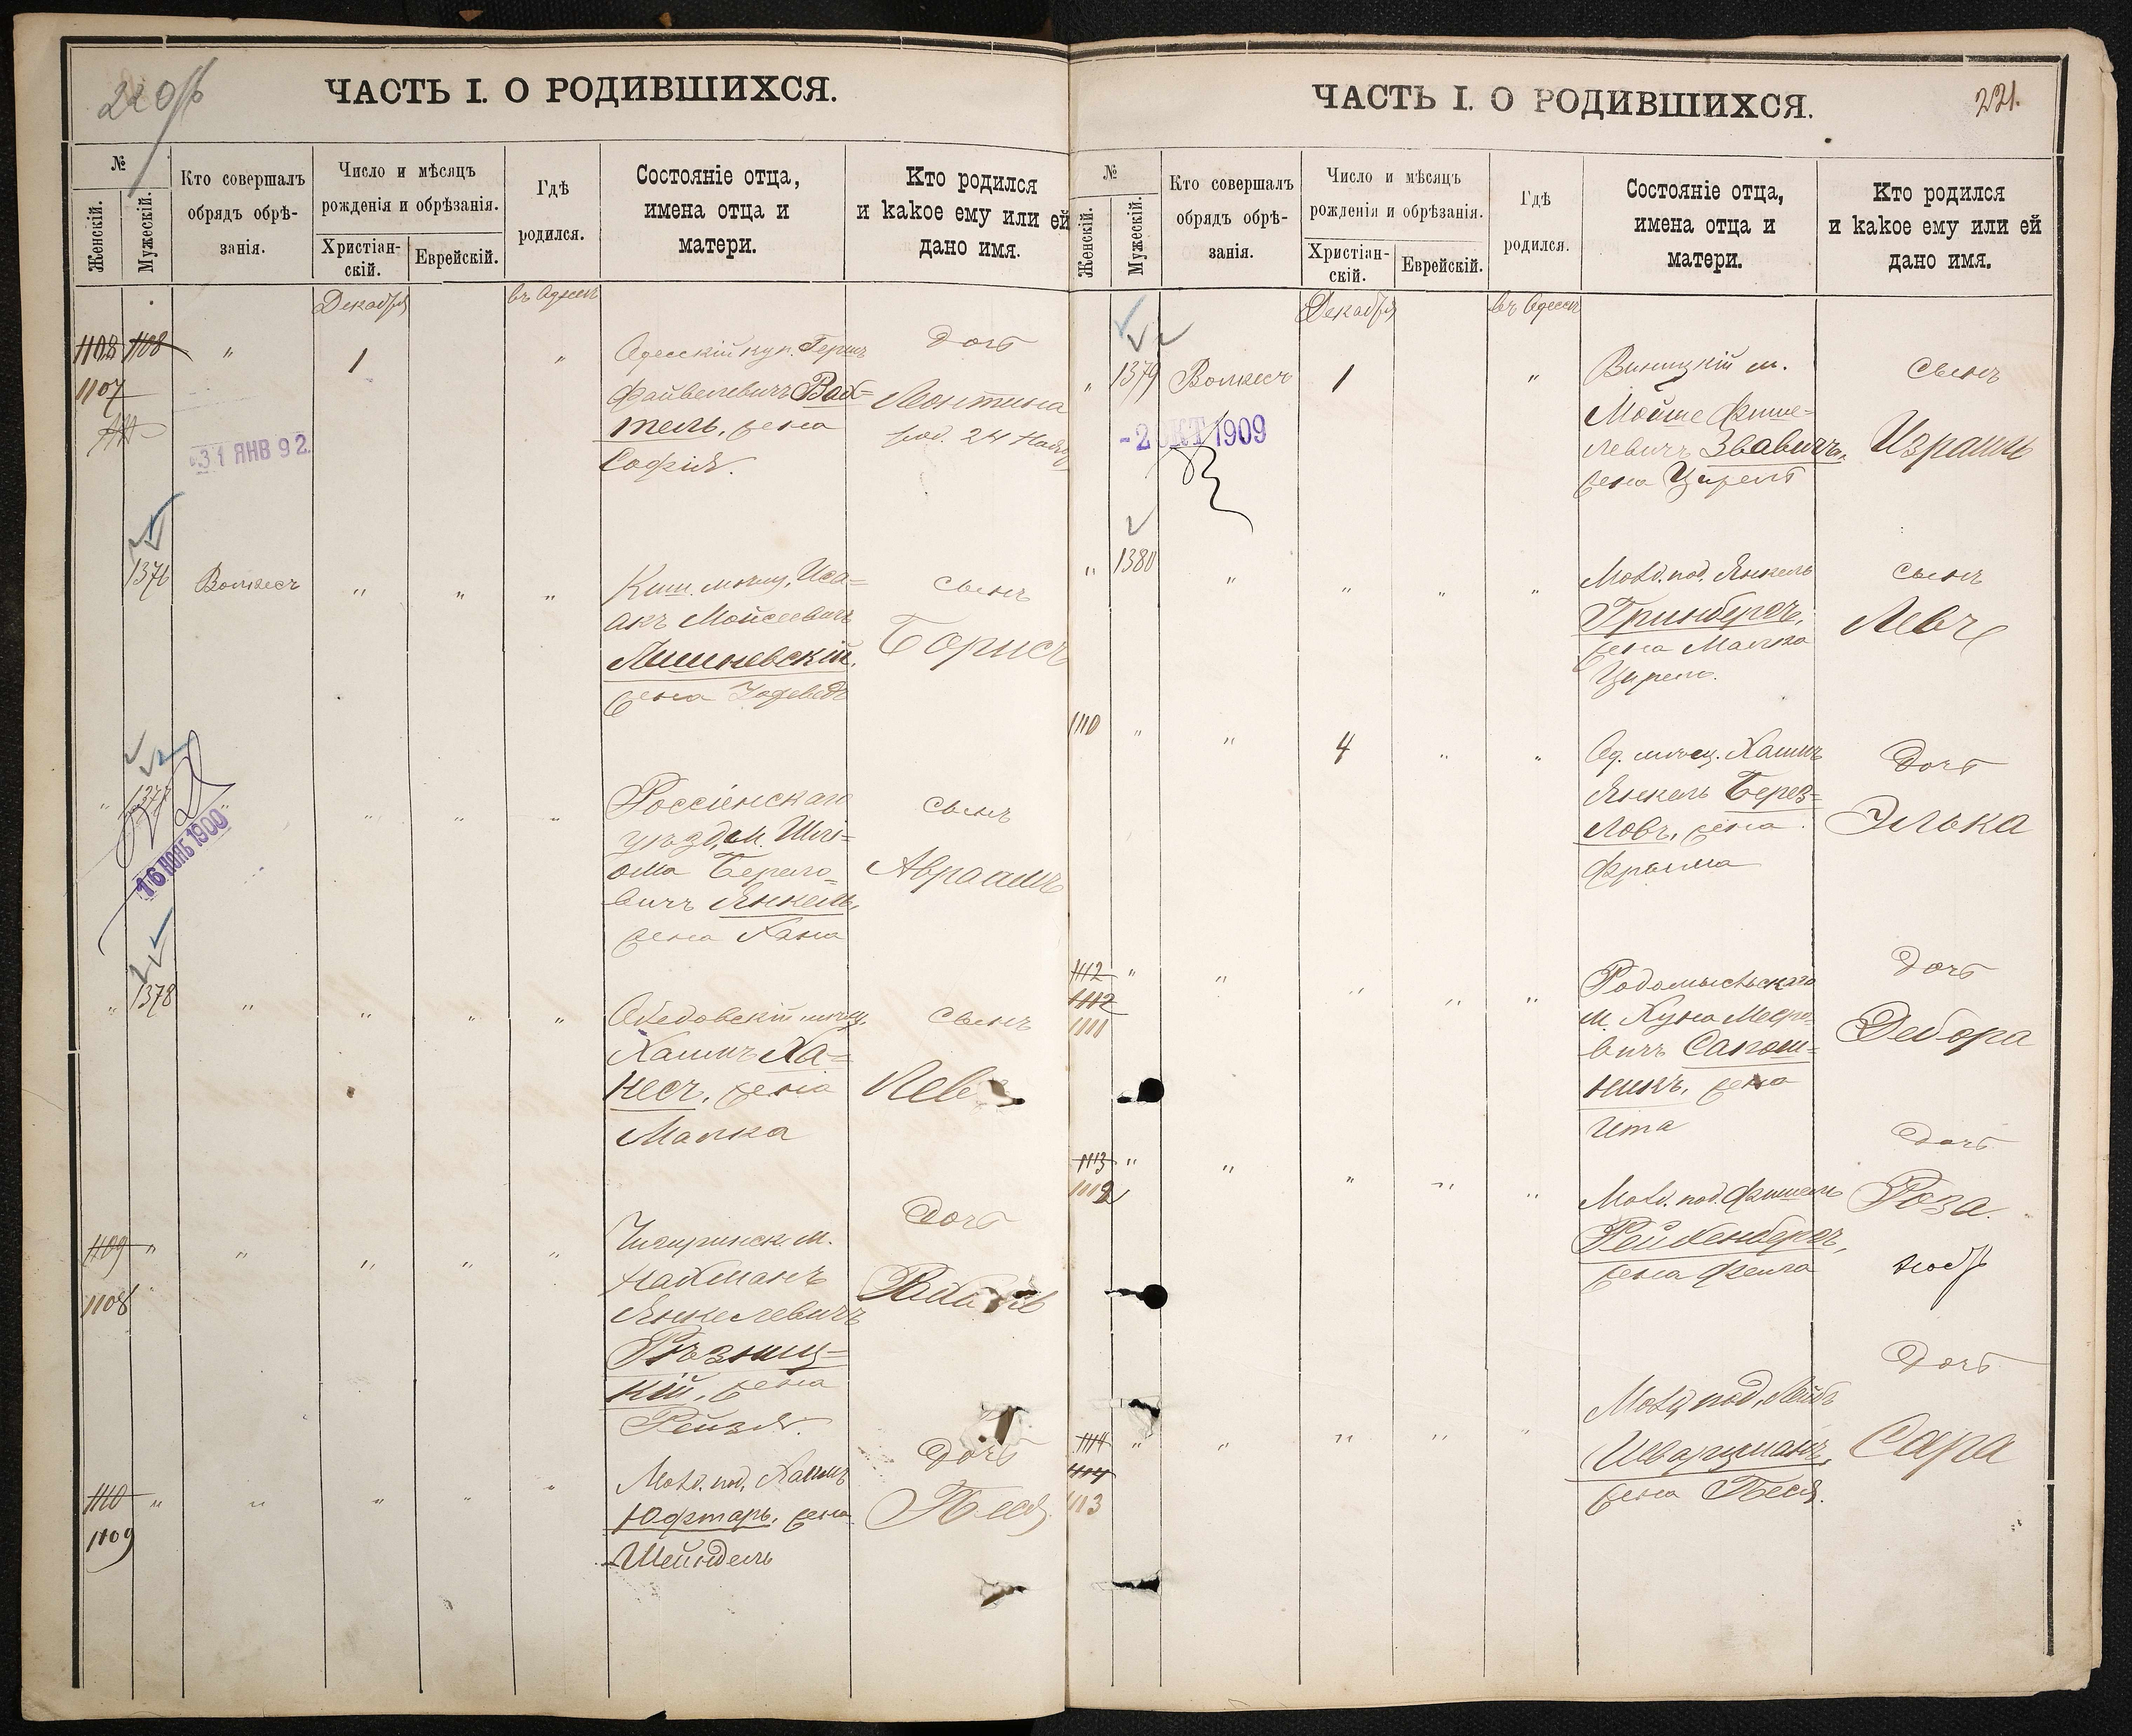 220 об
ЧАСТЬ I. О РОДИВШИХСЯ.
№
Женскій.
Мужескій.
Кто совершалъ
обрядъ обрѣ-
занія.
Число и мѣсяцъ
рожденія и обрѣзанія.
Христіан-
скій.
Еврейскій.
Гдѣ
родился.
Состояніе отца,
имена отца и
матери.
Кто родился
и какое ему или ей
дано имя.
Декабря
въ Одессѣ
1108 1108 " 1 "
1107
31 ЯНВ 92.
Одесскій куп. Герш
Файвелевичъ Вах=
тель, жена
Софія.
Дочь
Леонтина
род. 24 Ноября
1376 Волкесъ " " "
Киш. мѣщ. Иса=
акъ Мойсеевичъ
Лишневскій,
жена
сынъ
Борисъ
" 1377 " " "
16 НОЯБ 1900
Россіенскаго
уѣзд. м. Шлі=
ома Берело=
вичъ Янкель,
жена Хана
сынъ
Авраамъ
" 1378 " " " "
мѣщ.
Хаимъ Ха=
несъ, жена
Малка
сынъ
Лев
1109 " " " " "
1108
Чигиринск. м.
Нахманъ
Янкелевичъ
Рѣзниц=
кій, жена
Рейзя.
Дочь
1110 " " " " "
1109
Могил. под. Хаимъ
Юфтарь, жена
Шейндель
Дочь
Песя
ЧАСТЬ I. О РОДИВШИХСЯ.
221.
№
Женскій.
Мужескій.
Кто совершалъ
обрядъ обрѣ-
занія.
Число и мѣсяцъ
рожденія и обрѣзанія.
Христіан-
скій.
Еврейскій.
Гдѣ
родился.
Состояніе отца,
имена отца и
матери.
Кто родился
и какое ему или ей
дано имя.
Декабря
въ Одессѣ
" 1379 Волкесъ 1 "
-2 ОКТ 1909
Виницкій м.
Мойше Фише=
левичъ Звавичъ,
жена Цирель
сынъ
Израиль
" 1380 " " " "
Могил. под. Янкель
Гринбергъ,
жена Малка
Цирель.
сынъ
Левъ
1110 " " 4 " "
Од. мѣщ. Хаимъ
Янкель Берез=
ловъ, жена
Фрайма
Дочь
Элька
1112 " " " " "
1112
1111
Радомысльскаго
м. Куна Меєро=
вичъ Сапож=
никъ, жена
Ита
Дочь
Дебора
1113 " " " " "
1112
Могил. под. Фишель
Рейхенбергъ,
жена Фейга
Дочь
Роза.
нояб
1114 " " " " "
1114
1113
Могил. под. Лейбъ
Шварцманъ,
жена Песя.
Дочь
Сара